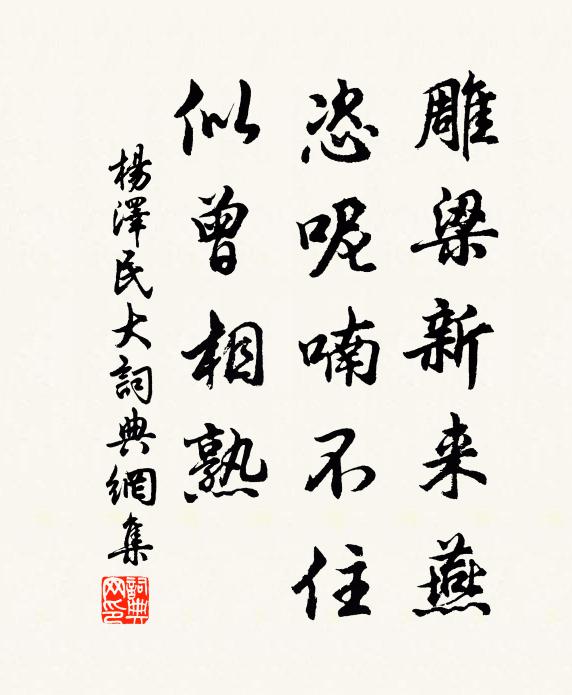 雕梁新来燕
恣呢喃不住
似曾相熟
楊澤民大詞典網集
詞典網印